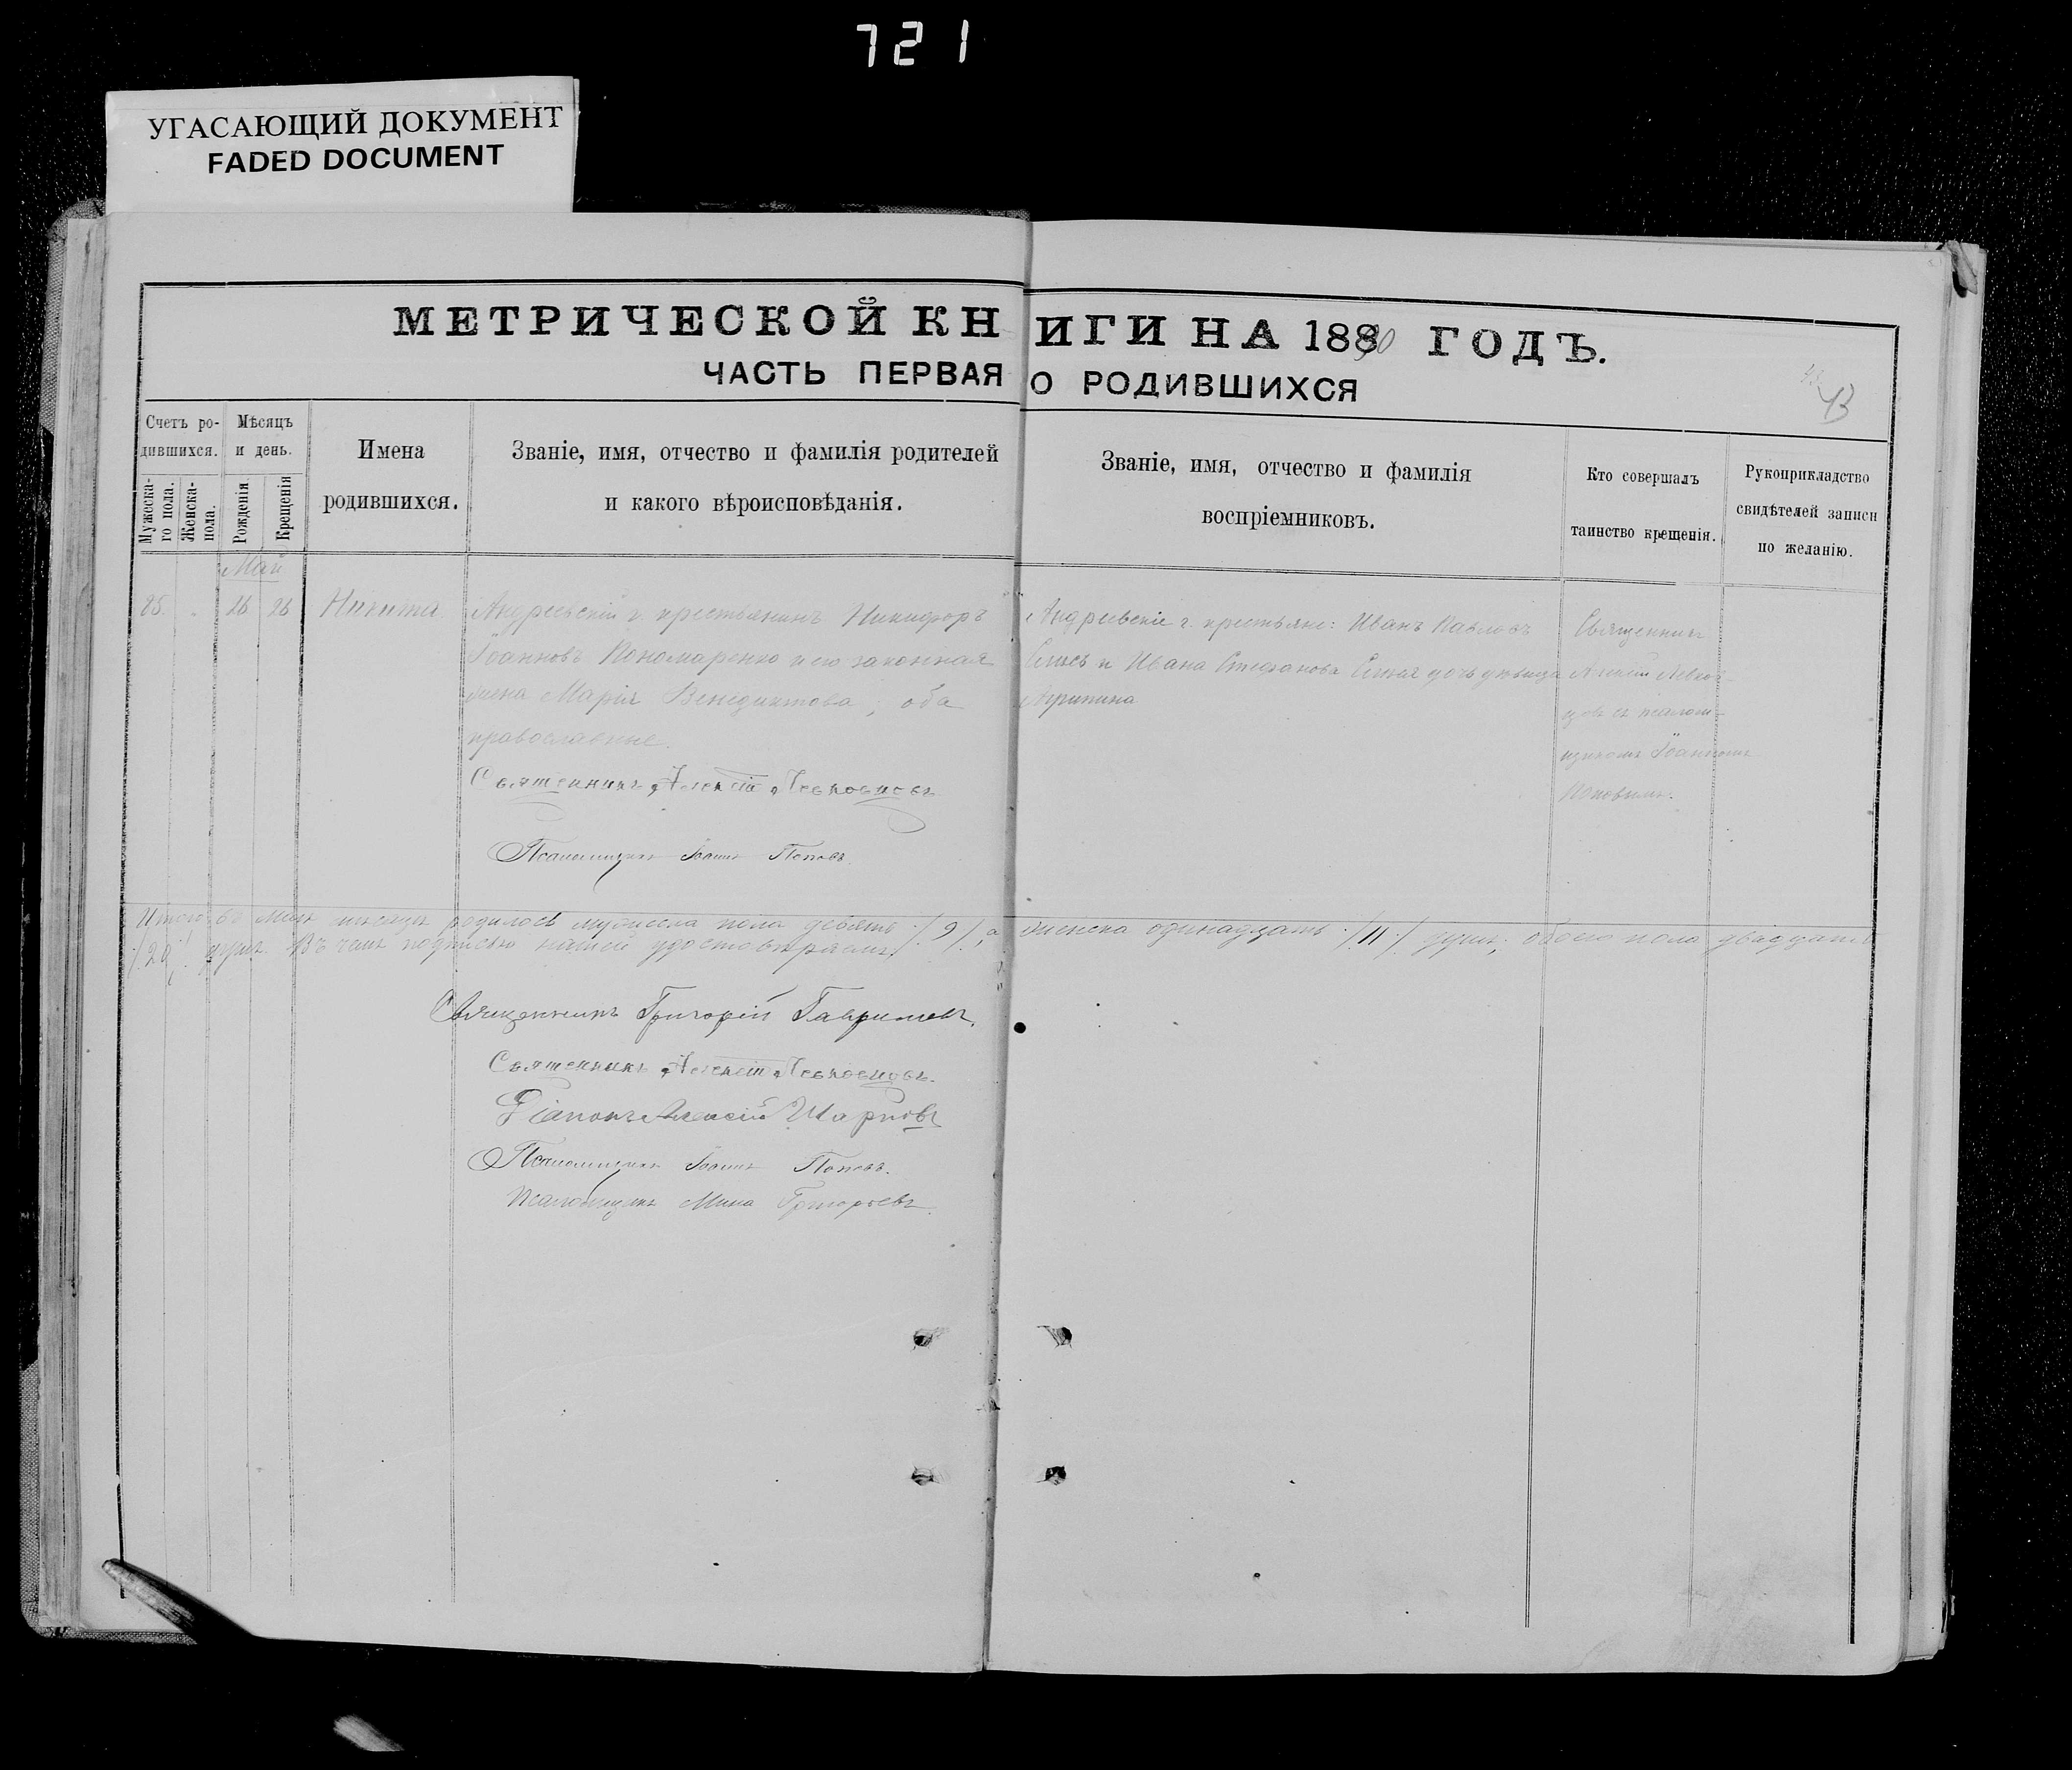 721
УГАСАЮЩИЙ ДОКУМЕНТ
FADED DOCUMENT
МЕТРИЧЕСКОЙ КНИГИ НА 1890 ГОДЪ.
ЧАСТЬ ПЕРВАЯ О РОДИВШИХСЯ
43
Счетъ ро-
дившихся.
Мужеска-
го пола.
Женска-
пола.
Мѣсяцъ
и день.
Рожденія
Крещенія
Имена
родившихся.
Званіе, имя, отчество и фамилія родителей
и какого вѣроисповѣданія.
Званіе, имя, отчество и фамилія
воспріемниковъ.
Кто совершалъ
таинство крещенія.
Рукоприкладство
свидѣтелей записи
по желанію.
Май
85. 26 26 Никита
Андреевскій г. крестьянинъ Никифоръ
Іоанновъ Пономаренко и его законная
жена Марія Венедиктова, оба
православные.
Священникъ Алексій
Псаломщикъ Іоаннъ Поповъ.
Андреевскіе г. крестьяне: Иванъ Павловъ
и Ивана Стефанова дочь дѣвица
Агрипина
Священникъ
Алексій
съ псалом-
щикомъ Іоанномъ
Поповымъ.
Итого въ Маѣ мѣсяцѣ родилось мужеска пола девять /9/, а женска одинадцать /11/ душъ, обоего пола двадцать
/20/ душъ. Въ чемъ подписью нашей удостовѣряемъ
Священникъ Григорій Гавриловъ.
Священникъ Алексій
Діаконъ Алексій Шарковъ
Псаломщикъ Іоаннъ Поповъ.
Псаломщикъ Мина Григорьевъ.